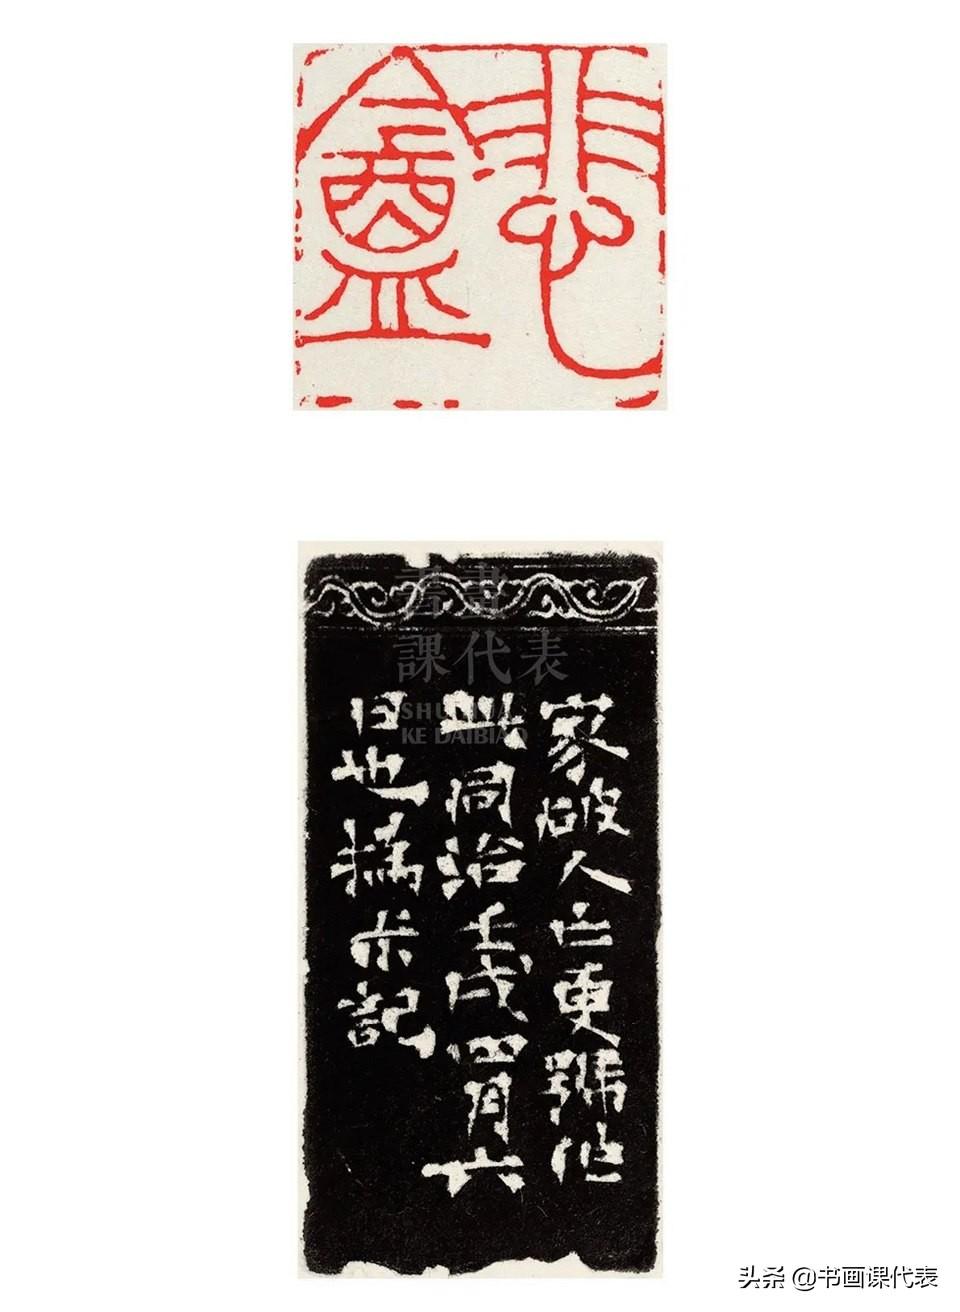 悲盦
書畫
課代表
SHUHUA
KE DAIBIAO
家破人亡更號作
此同治壬戌四月六
日也撝尗記
头条 @书画课代表